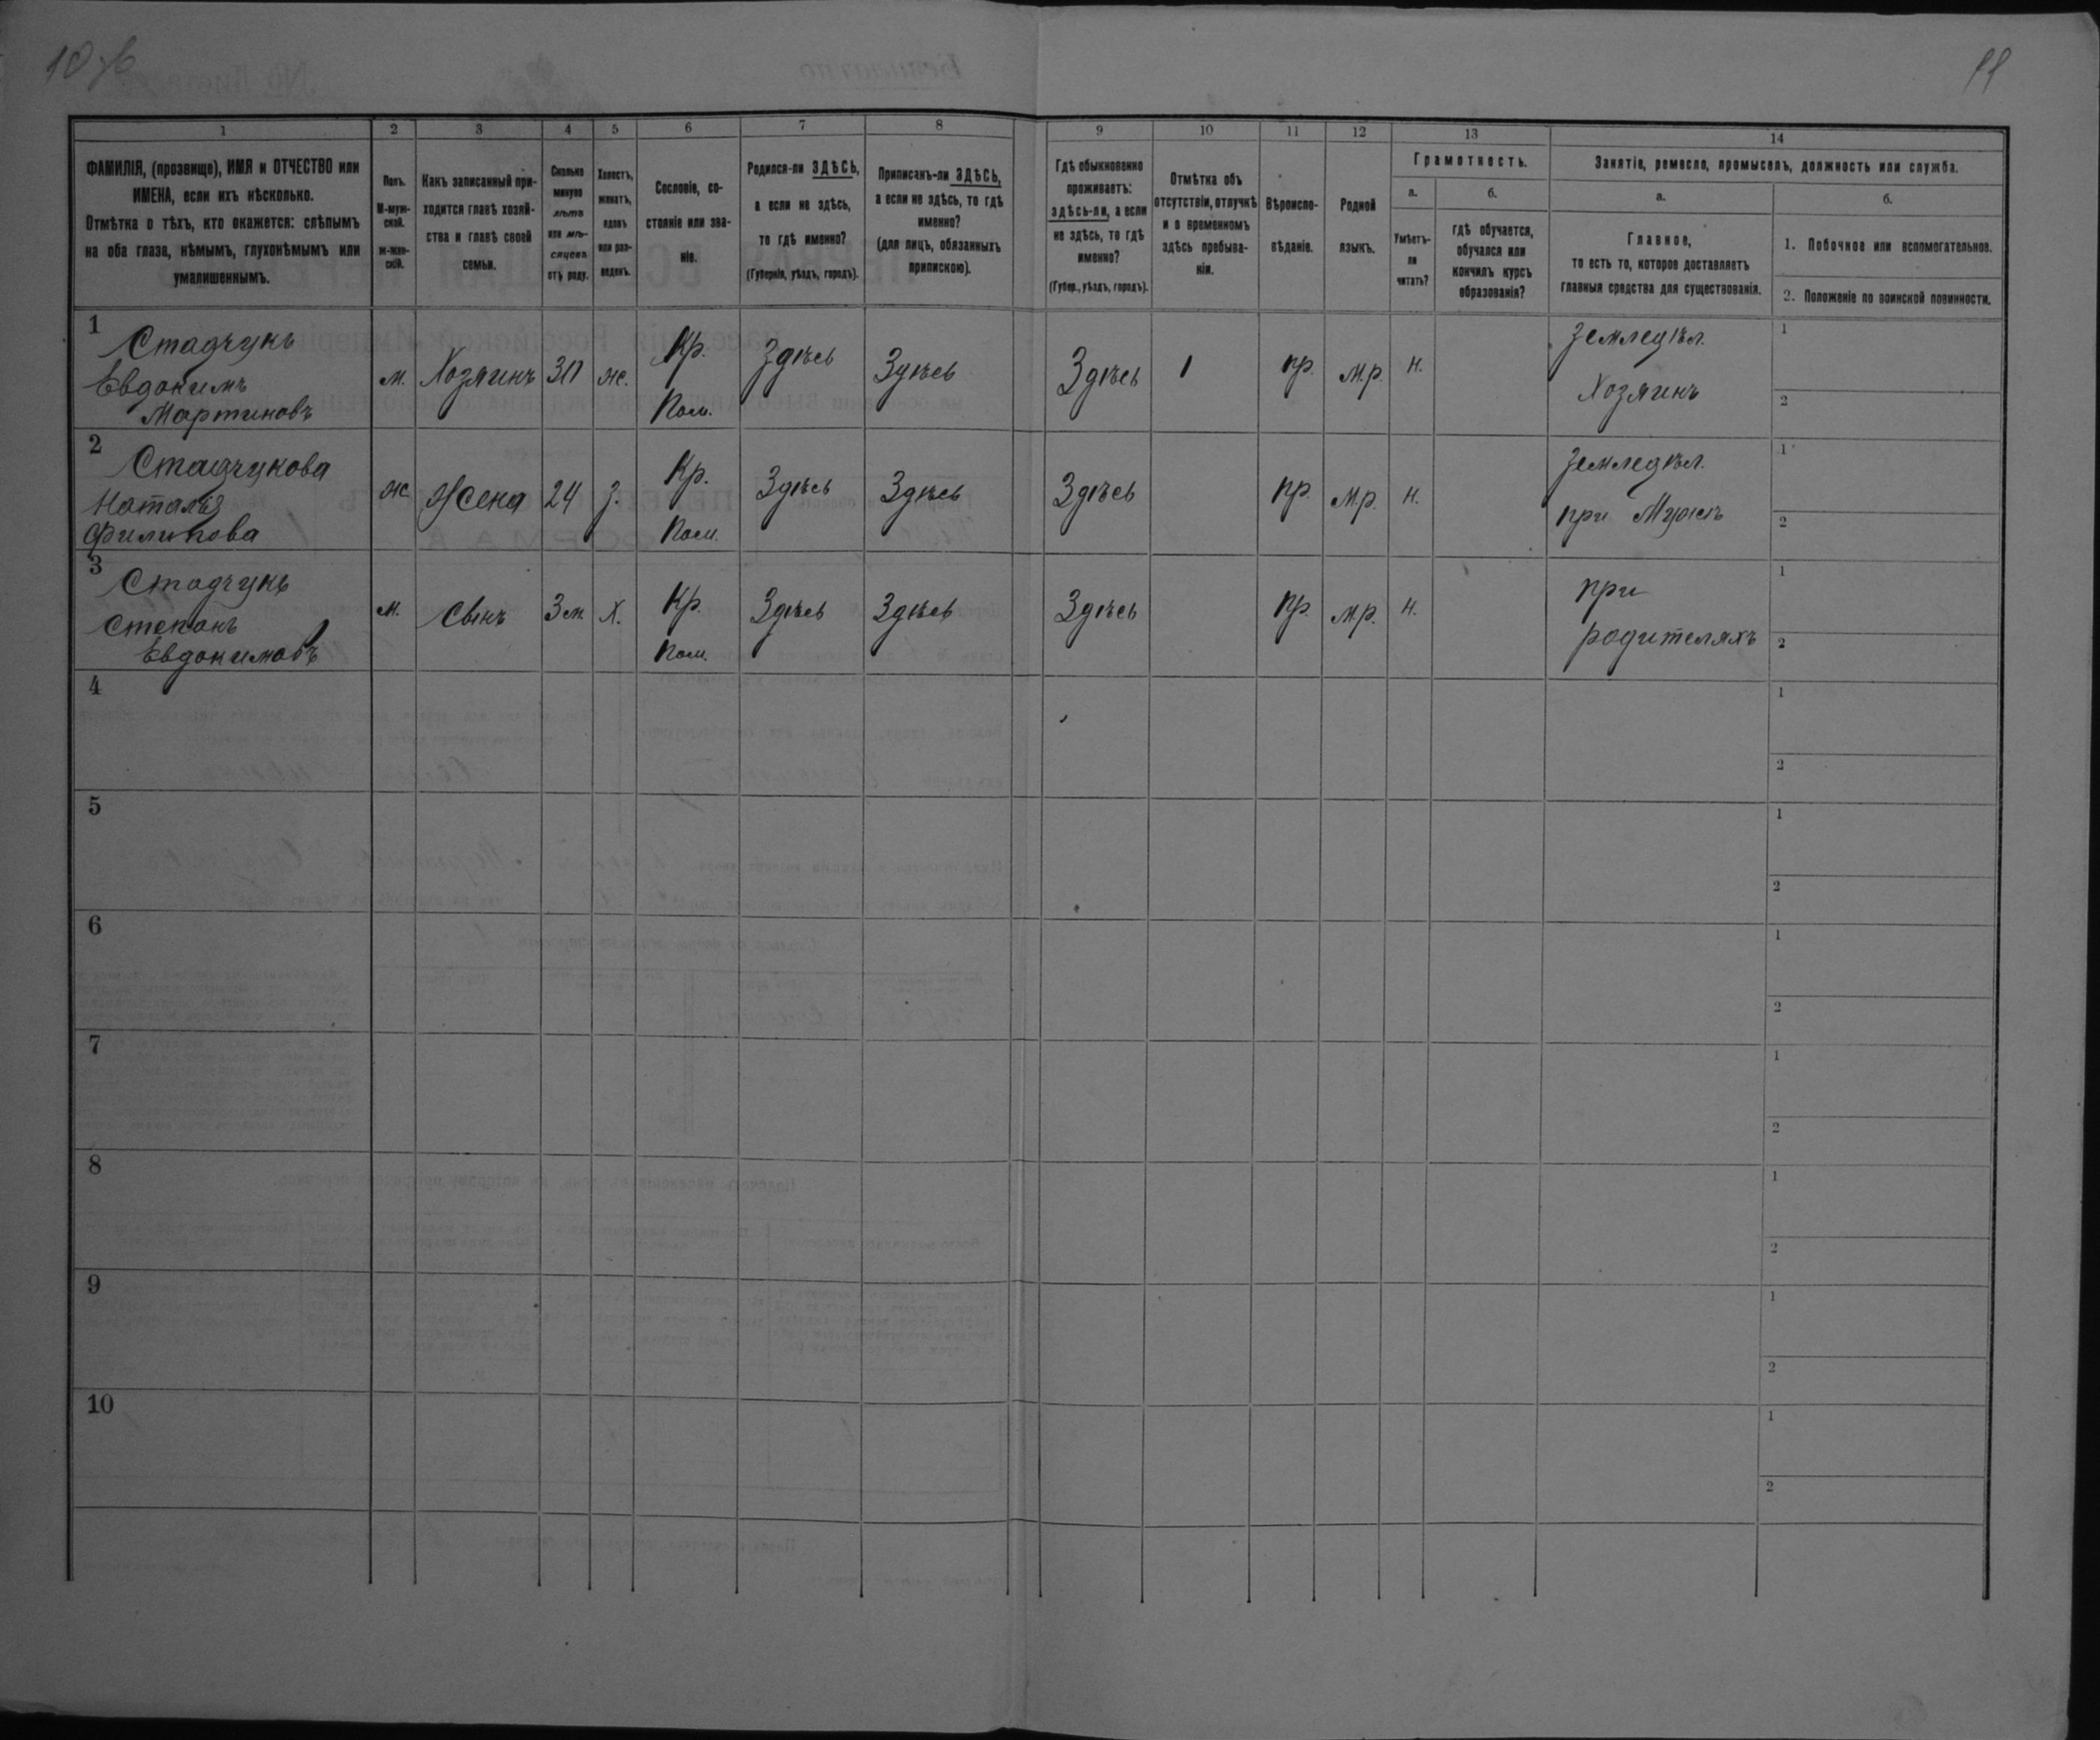 11
1
2
3
4
5
6
7
8
9
10
11
12
13
14
ФАМИЛІЯ, (прозвище), ИМЯ и ОТЧЕСТВО или
ИМЕНА, если ихъ нѣсколько.
Отмѣтка о тѣхъ, кто окажется: слѣпымъ
на оба глаза, нѣмымъ, глухонѣмымъ или
умалишеннымъ.
Полъ.
М-муж-
ской.
ж-жен-
скій.
Какъ записанный при-
ходится главѣ хозяй-
ства и главѣ своей
семьи.
Сколько
минуло
лѣтъ
или мѣ-
сяцевъ
отъ роду.
Холостъ,
женатъ,
вдовъ
или раз-
веденъ.
Сословіе, со-
стояніе или зва-
ніе.
Родился-ли ЗДѢСЬ,
а если не здѣсь,
то гдѣ именно?
(Губернія, уѣздъ, городъ).
Приписанъ-ли ЗДѢСЬ,
а если не здѣсь, то гдѣ
именно?
(для лицъ, обязанныхъ
припискою).
Гдѣ обыкновенно
проживаетъ:
здѣсь-ли, а если
не здѣсь, то гдѣ
именно?
(Губер., уѣздъ, городъ).
Отмѣтка объ
отсутствіи, отлучкѣ
и о временномъ
здѣсь пребыва-
ніи.
Вѣроиспо-
вѣданіе.
Родной
языкъ.
Грамотность.
а.
б.
Умѣетъ-
ли
читать?
гдѣ обучается,
обучался или
кончилъ курсъ
образованія?
Занятіе, ремесло, промыселъ, должность или служба.
а.
б.
Главное,
то есть то, которое доставляетъ
главныя средства для существованія.
1. Побочное или вспомогательное.
2. Положеніе по воинской повинности.
1
Стадчукъ
Евдокимъ
Мартиновъ
м.
Хозяинъ
30
ж.
Кр.
Пом.
Здѣсь
Здѣсь
Здѣсь
1
пр.
м.р.
н.
земледѣл.
Хозяинъ
1
2
2
Стадчукова
Наталья
Филипова
ж
Жена
24
з.
Кр.
Пом.
Здѣсь
Здѣсь
Здѣсь
пр.
м.р.
н.
земледѣл.
при Мужѣ
1
2
3
Стадчукъ
Степанъ
Евдокимовъ
м.
сынъ
3 м.
х.
Кр.
Пом.
Здѣсь
Здѣсь
Здѣсь
пр.
м.р.
н.
при
родителяхъ
1
2
4
1
2
5
1
2
6
1
2
7
1
2
8
1
2
9
1
2
10
1
2